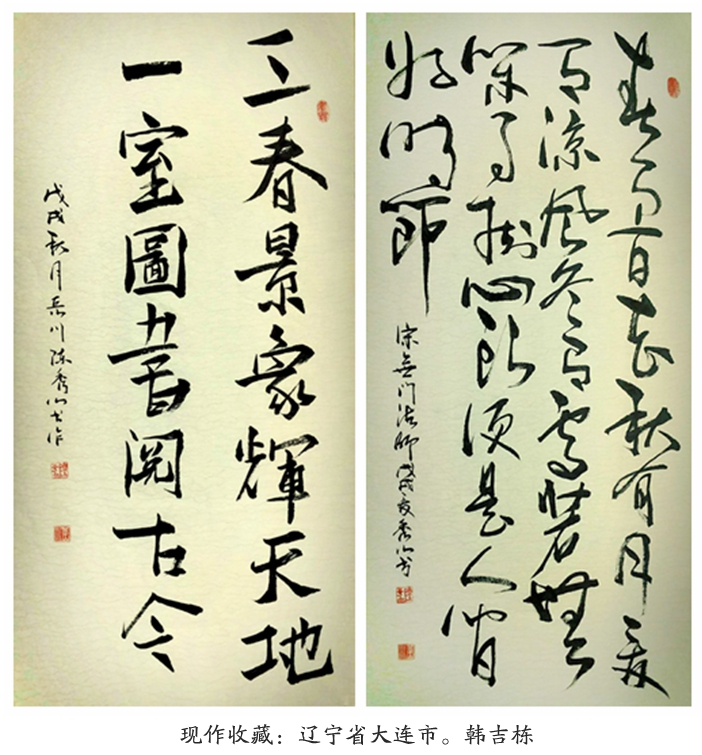 三春景象輝天地
一室圖書阅古今
戊戌秋月吴川陈秀书作
春有百花秋有月夏
有凉风冬有雪若無
闲事挂心头便是人间
好时節
宋無门法师戊戌夏秀书
现作收藏：辽宁省大连市。韩吉栋